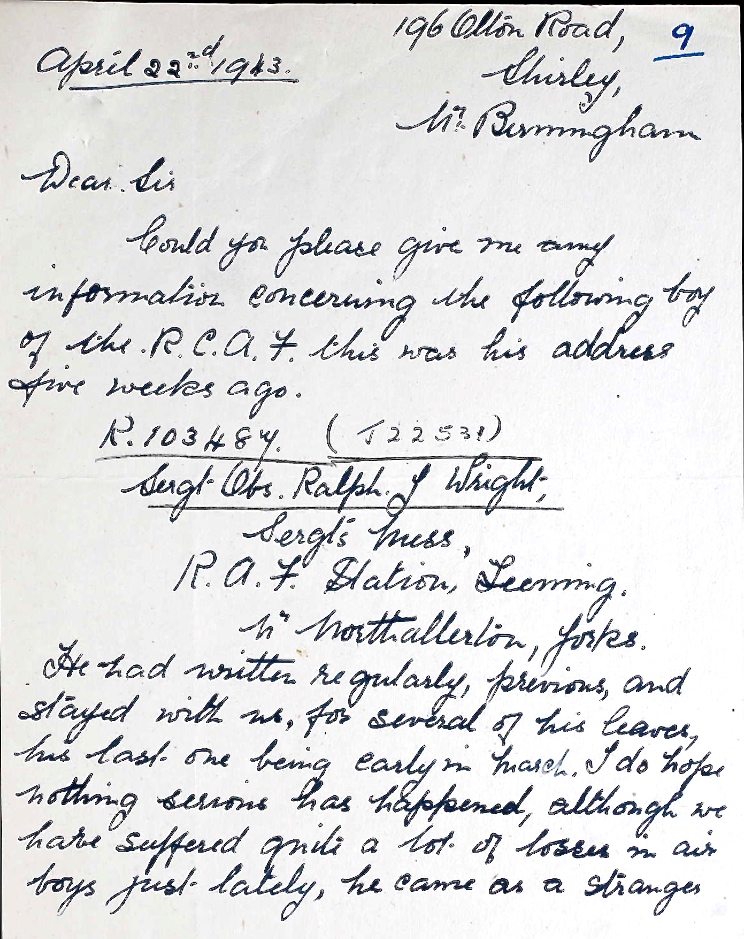 196 Olton Road,
9
April 22nd 1943.
Shirley,
Nr. Birmingham
Dear Sir
Could you please give me any
information concerning the following boy
of the R.C.A.F. this was his address
five weeks ago.
R.103487. (J22531)
Sergt Obs. Ralph. J Wright,
Sergts Mess,
R.A.F. Station, Leeming.
Nr Northallerton, Yorks.
He had written regularly, previous, and
stayed with us, for several of his leaves,
his last one being early in March. I do hope
nothing serious has happened, although we
have suffered quite a lot of losses in air
boys just lately, he came as a stranger